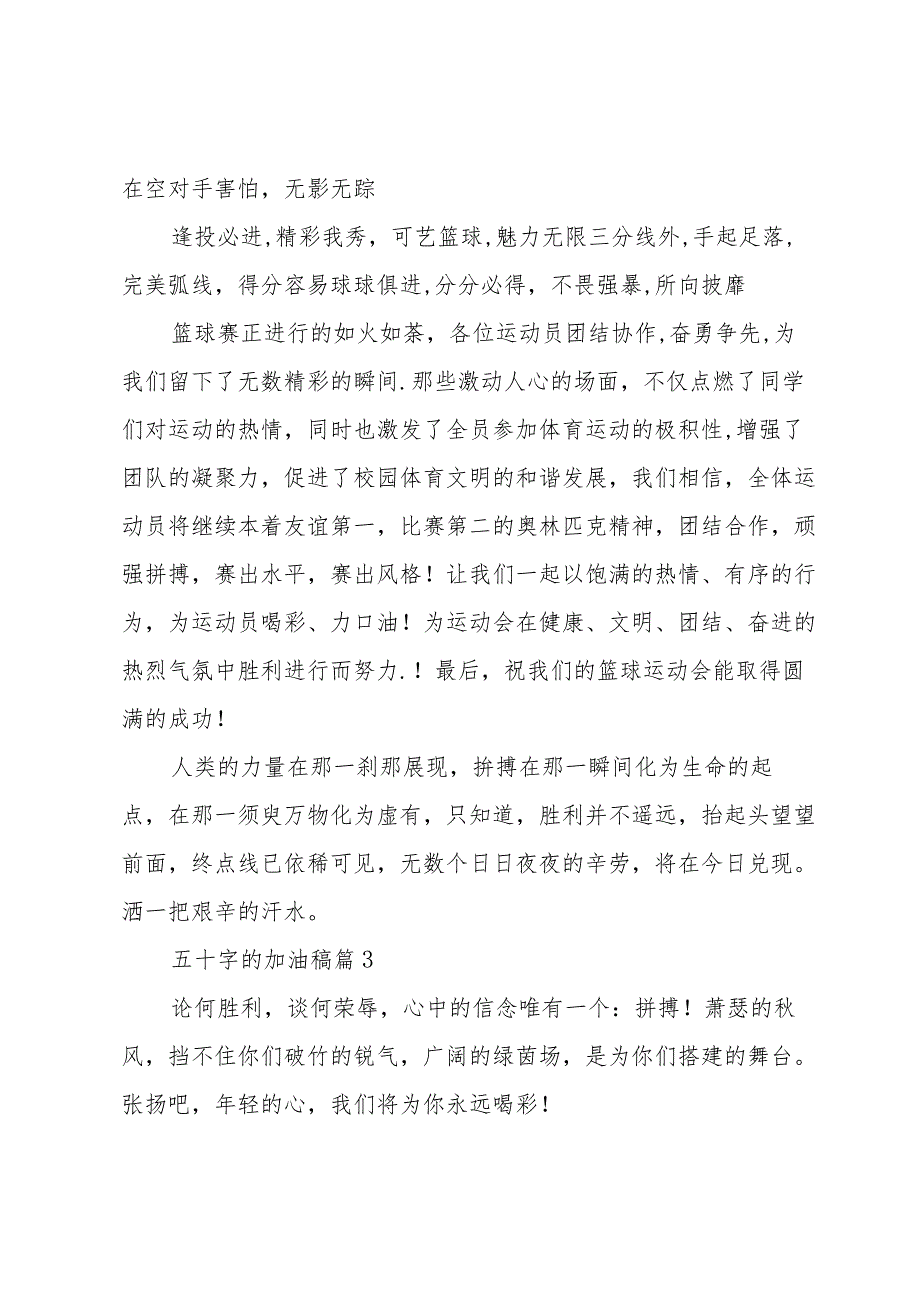 在空对手害怕，无影无踪
逢投必进,精彩我秀，可艺篮球,魅力无限三分线外,手起足落,
完美弧线，得分容易球球俱进,分分必得，不畏强暴,所向披靡
篮球赛正进行的如火如荼，各位运动员团结协作,奋勇争先,为
我们留下了无数精彩的瞬间.那些激动人心的场面，不仅点燃了同学
们对运动的热情，同时也激发了全员参加体育运动的极积性,增强了
团队的凝聚力，促进了校园体育文明的和谐发展，我们相信，全体运
动员将继续本着友谊第一，比赛第二的奥林匹克精神，团结合作，顽
强拼搏，赛出水平，赛出风格！让我们一起以饱满的热情、有序的行
为，为运动员喝彩、力口油！为运动会在健康、文明、团结、奋进的
热烈气氛中胜利进行而努力.！最后，祝我们的篮球运动会能取得圆
满的成功！
人类的力量在那一刹那展现，拚搏在那一瞬间化为生命的起
点，在那一须臾万物化为虚有，只知道，胜利并不遥远，抬起头望望
前面，终点线已依稀可见，无数个日日夜夜的辛劳，将在今日兑现。
洒一把艰辛的汗水。
五十字的加油稿篇3
论何胜利，谈何荣辱，心中的信念唯有一个：拼搏！萧瑟的秋
风，挡不住你们破竹的锐气，广阔的绿茵场，是为你们搭建的舞台。
张扬吧，年轻的心，我们将为你永远喝彩！